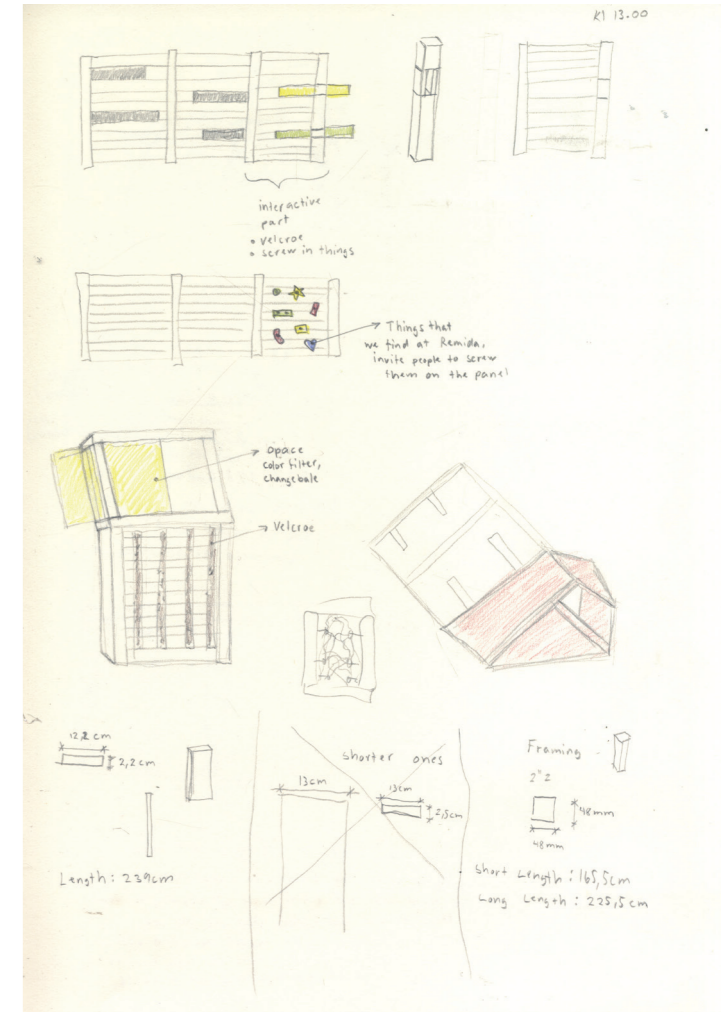 Kl 13.00
interactive
part
• velcroe
• screw in things
Things that
we find at Remida,
invite people to screw
them on the panel
opace
color filter,
changebale
Velcroe
12,2 cm
2,2cm
Length: 239cm
shorter ones
13cm
13cm
2,5cm
Framing
2"2
48mm
48mm
Short Length: 165,5cm
Long Length: 225,5cm